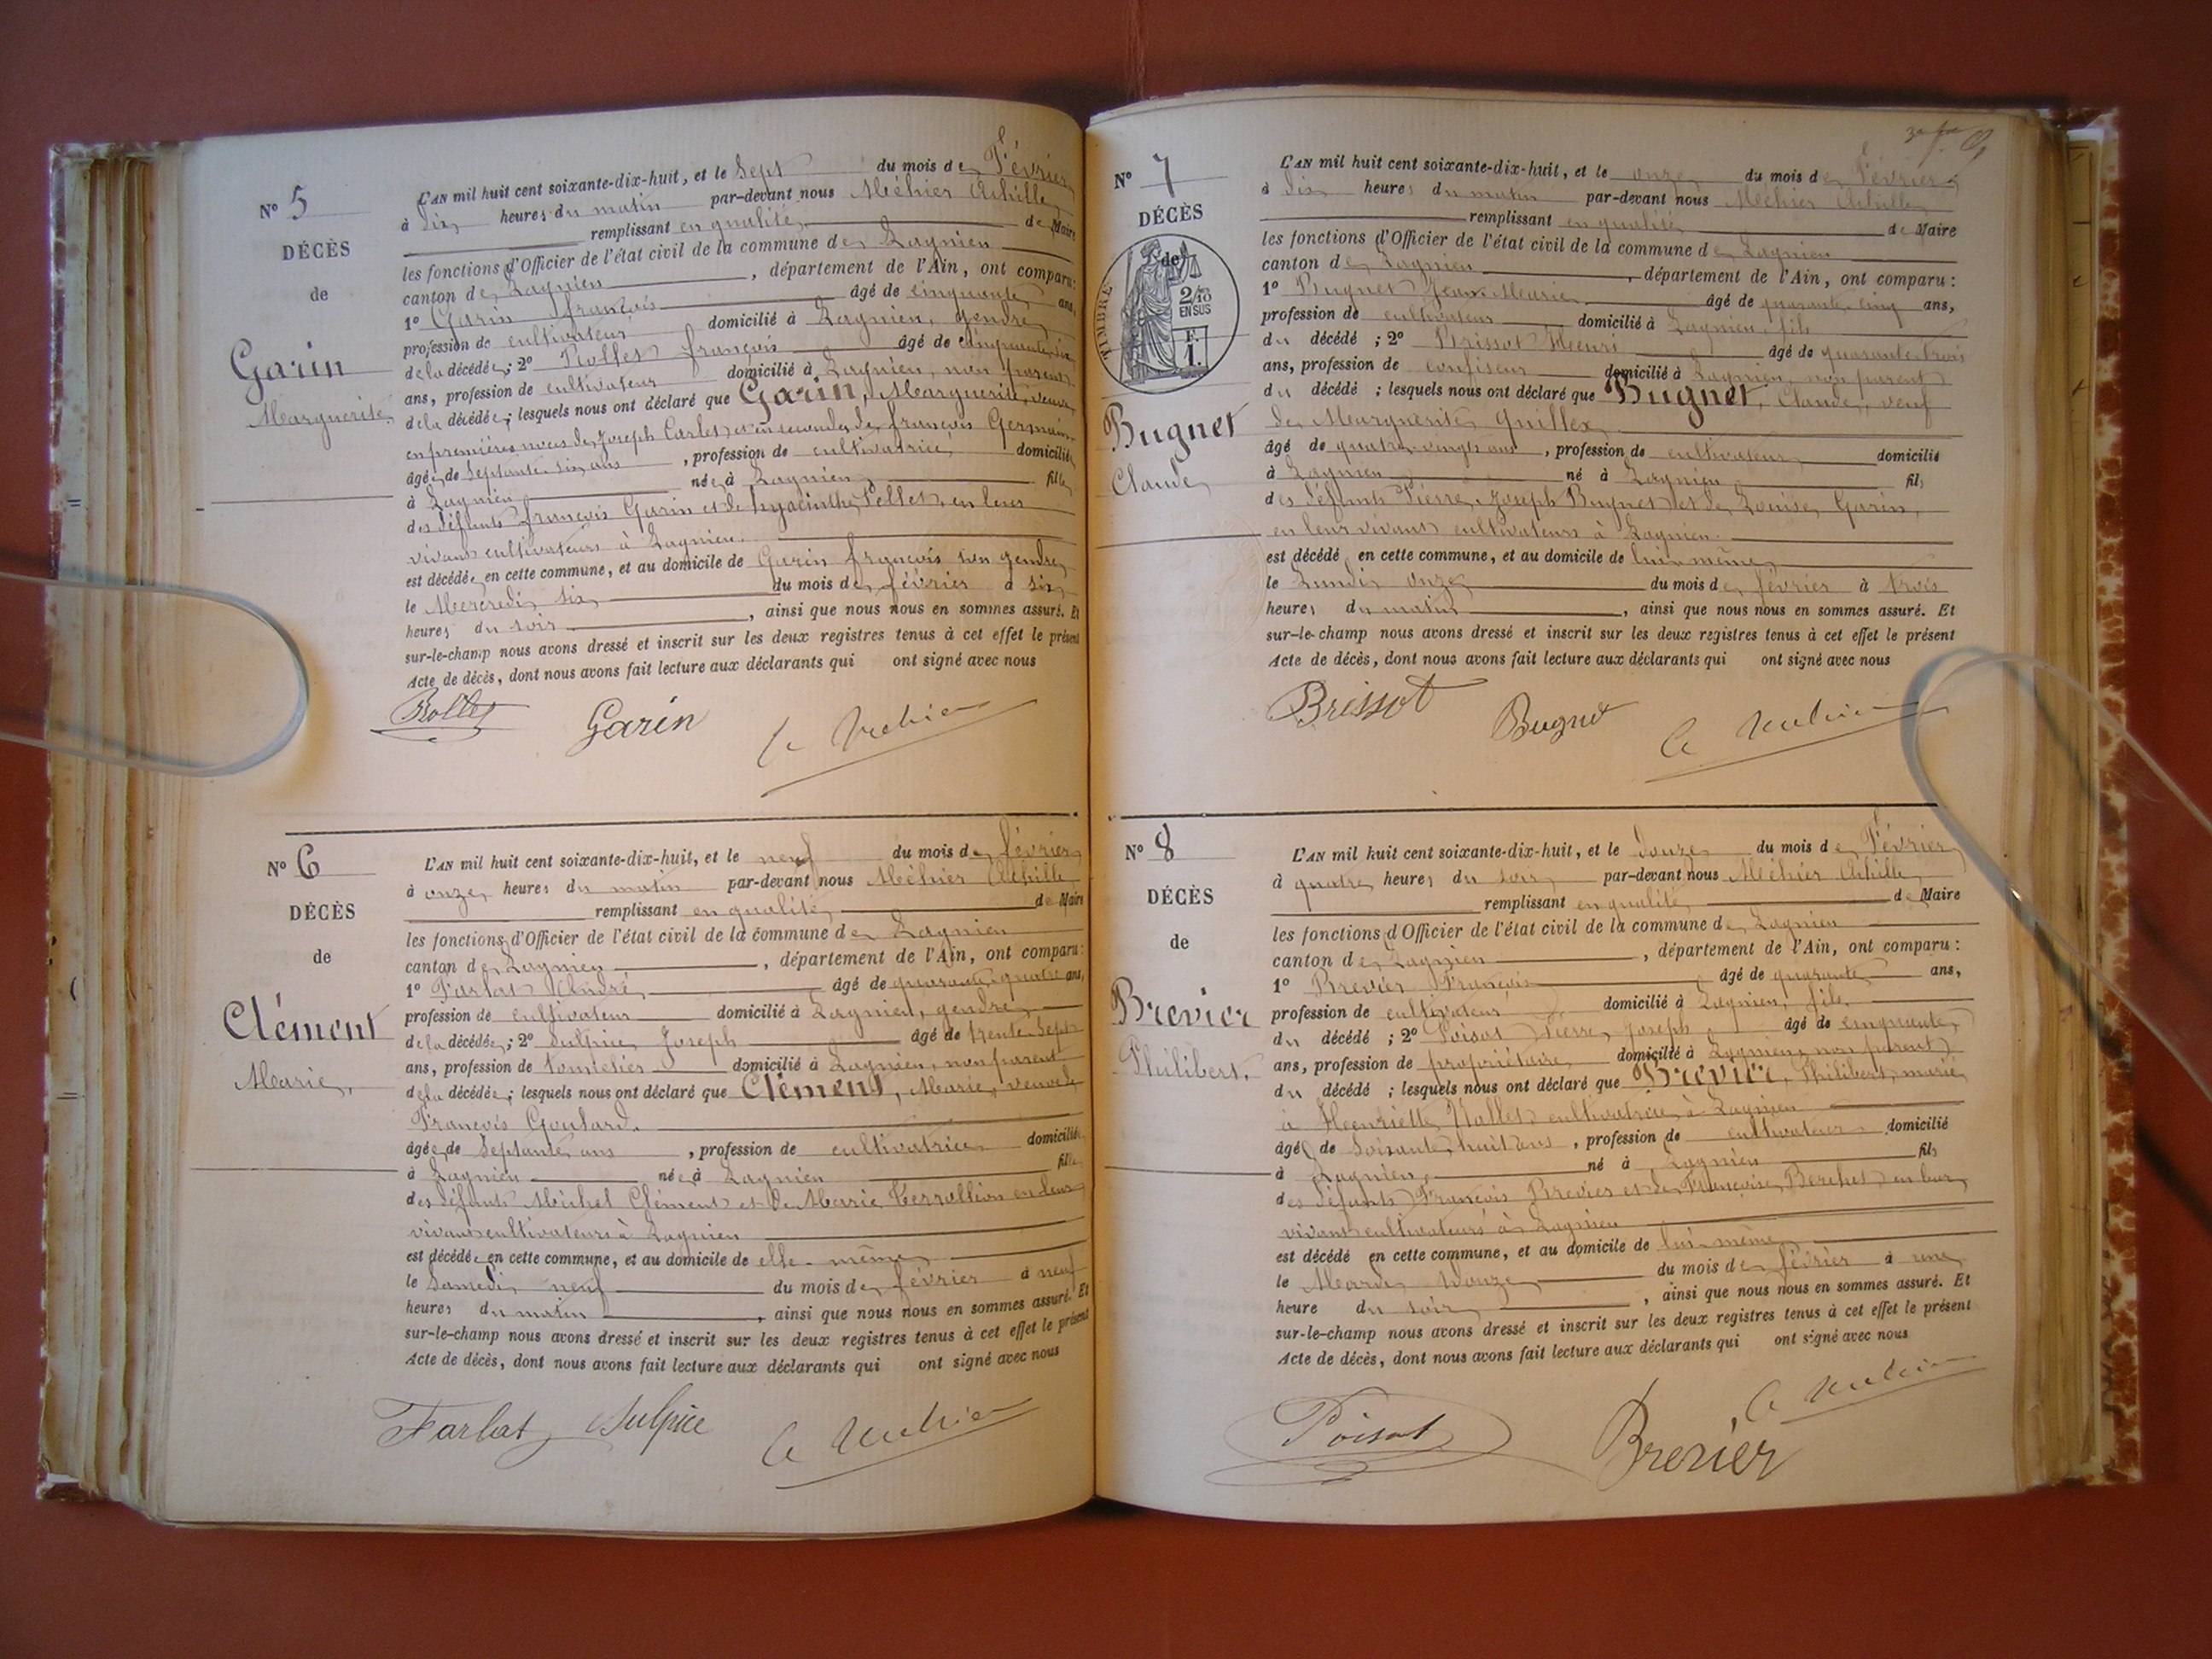 N° 5
DÉCÈS
de
Garin
Marguerite
L'AN mil huit cent soixante-dix-huit, et le Sept du mois de Février
à dix heures du matin par-devant nous Méhier Achille
remplissant en qualité de Maire
les fonctions d'Officier de l'état civil de la commune de Lagnieu
canton de Lagnieu, département de l'Ain, ont comparu:
1° Garin françois âgé de cinquante ans,
profession de cultivateur domicilié à Lagnieu, gendre
de la décédée; 2° Rollet françois âgé de cinquante six
ans, profession de cultivateur domicilié à Lagnieu, non parent
de la décédée; lesquels nous ont déclaré que Garin, Marguerite, veuve
en premières noces de Joseph Carlet et en secondes de françois Germain
âgée de Septante-six ans, profession de cultivatrice domiciliée
à Lagnieu née à Lagnieu fille
des défunts françois Garin et de hyacinthe Pellet, en leur
vivant cultivateurs à Lagnieu.
est décédée en cette commune, et au domicile de Garin françois son gendre
le Mercredi six du mois de février à six
heures du soir, ainsi que nous nous en sommes assuré. Et
sur-le-champ nous avons dressé et inscrit sur les deux registres tenus à cet effet le présent
Acte de décès, dont nous avons fait lecture aux déclarants qui ont signé avec nous
Rollet Garin A Méhier
N° 6
DÉCÈS
de
Clément
Marie,
L'AN mil huit cent soixante-dix-huit, et le neuf du mois de février
à onze heures du matin par-devant nous Méhier Achille
remplissant en qualité de Maire
les fonctions d'Officier de l'état civil de la commune de Lagnieu
canton de Lagnieu, département de l'Ain, ont comparu:
1° Farlat André âgé de quarante-quatre ans,
profession de cultivateur domicilié à Lagnieu, gendre
de la décédée; 2° Sulpice Joseph âgé de trente-sept
ans, profession de tonnelier domicilié à Lagnieu, non parent
de la décédée; lesquels nous ont déclaré que Clément, Marie, veuve de
François Goulard.
âgée de Septante ans, profession de cultivatrice domiciliée
à Lagnieu née à Lagnieu fille
des défunts Michel Clément et de Marie Verrollion en leur
vivant cultivateurs à Lagnieu
est décédée en cette commune, et au domicile de elle-même
le Samedi neuf du mois de février à neuf
heures du matin, ainsi que nous nous en sommes assuré. Et
sur-le-champ nous avons dressé et inscrit sur les deux registres tenus à cet effet le présent
Acte de décès, dont nous avons fait lecture aux déclarants qui ont signé avec nous
Farlat Sulpice A Méhier
N° 7
DÉCÈS
de
TIMBRE
2/10
EN SUS
F.
1.
Bugnet
Claude
L'AN mil huit cent soixante-dix-huit, et le onze du mois de Février
à dix heures du matin par-devant nous Méhier Achille
remplissant en qualité de Maire
les fonctions d'Officier de l'état civil de la commune de Lagnieu
canton de Lagnieu, département de l'Ain, ont comparu:
1° Bugnet Jean-Marie âgé de quarante-cinq ans,
profession de cultivateur domicilié à Lagnieu, fils
du décédé; 2° Brissot Henri âgé de quarante-trois
ans, profession de confiseur domicilié à Lagnieu, non parent
du décédé; lesquels nous ont déclaré que Bugnet, Claude, veuf
de Marguerite Guillex,
âgé de quatre-vingts ans, profession de cultivateur domicilié
à Lagnieu né à Lagnieu fils
des défunts Pierre-Joseph Bugnet et de Louise Garin,
en leur vivant cultivateurs à Lagnieu.
est décédé en cette commune, et au domicile de lui-même
le Lundi onze du mois de février à trois
heures du matin, ainsi que nous nous en sommes assuré. Et
sur-le-champ nous avons dressé et inscrit sur les deux registres tenus à cet effet le présent
Acte de décès, dont nous avons fait lecture aux déclarants qui ont signé avec nous
Brissot Bugnet A Méhier
N° 8
DÉCÈS
de
Brevier
Philibert.
L'AN mil huit cent soixante-dix-huit, et le douze du mois de Février
à quatre heures du soir par-devant nous Méhier Achille
remplissant en qualité de Maire
les fonctions d'Officier de l'état civil de la commune de Lagnieu
canton de Lagnieu, département de l'Ain, ont comparu:
1° Brevier François âgé de quarante ans,
profession de cultivateur domicilié à Lagnieu, fils
du décédé; 2° Poisat Pierre Joseph âgé de cinquante
ans, profession de propriétaire domicilié à Lagnieu, non parent
du décédé; lesquels nous ont déclaré que Brevier, Philibert, marié
à Henriette Nallet cultivatrice à Lagnieu
âgé de Soixante-huit ans, profession de cultivateur domicilié
à Lagnieu, né à Lagnieu fils
des défunts François Brevier et de Françoise Berchet en leur
vivant cultivateurs à Lagnieu
est décédé en cette commune, et au domicile de lui-même
le Mardi douze du mois de février à une
heure du soir, ainsi que nous nous en sommes assuré. Et
sur-le-champ nous avons dressé et inscrit sur les deux registres tenus à cet effet le présent
Acte de décès, dont nous avons fait lecture aux déclarants qui ont signé avec nous
Poisat Brevier A Méhier